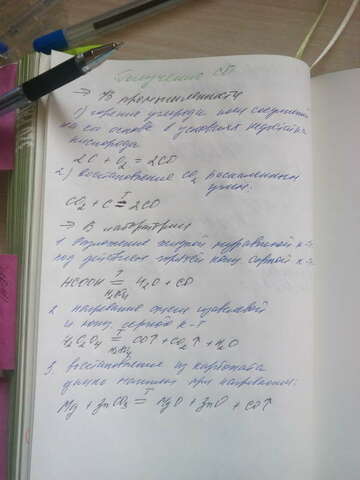 Получение CO
⇒ В промышленности
1) горение углерода или соединений
на его основе в условиях недостатка
кислорода
2C + O₂ = 2CO
2.) восстановление CO₂ раскаленным
углем.
CO₂ + C =ᵀ 2CO
⇒ В лаборатории
1. Разложение жидкой муравьиной к-т
под действием горячей конц серной к-т.
HCOOH = H₂O + CO
H₂SO₄
2. нагревание смеси щавелевой
и конц. серной к-т
H₂C₂O₄ =ᵀ CO↑ + CO₂↑ + H₂O
H₂SO₄
3. восстановление из карбоната
цинка магнием при нагревании:
Mg + ZnCO₃ =ᵀ MgO + ZnO + CO↑